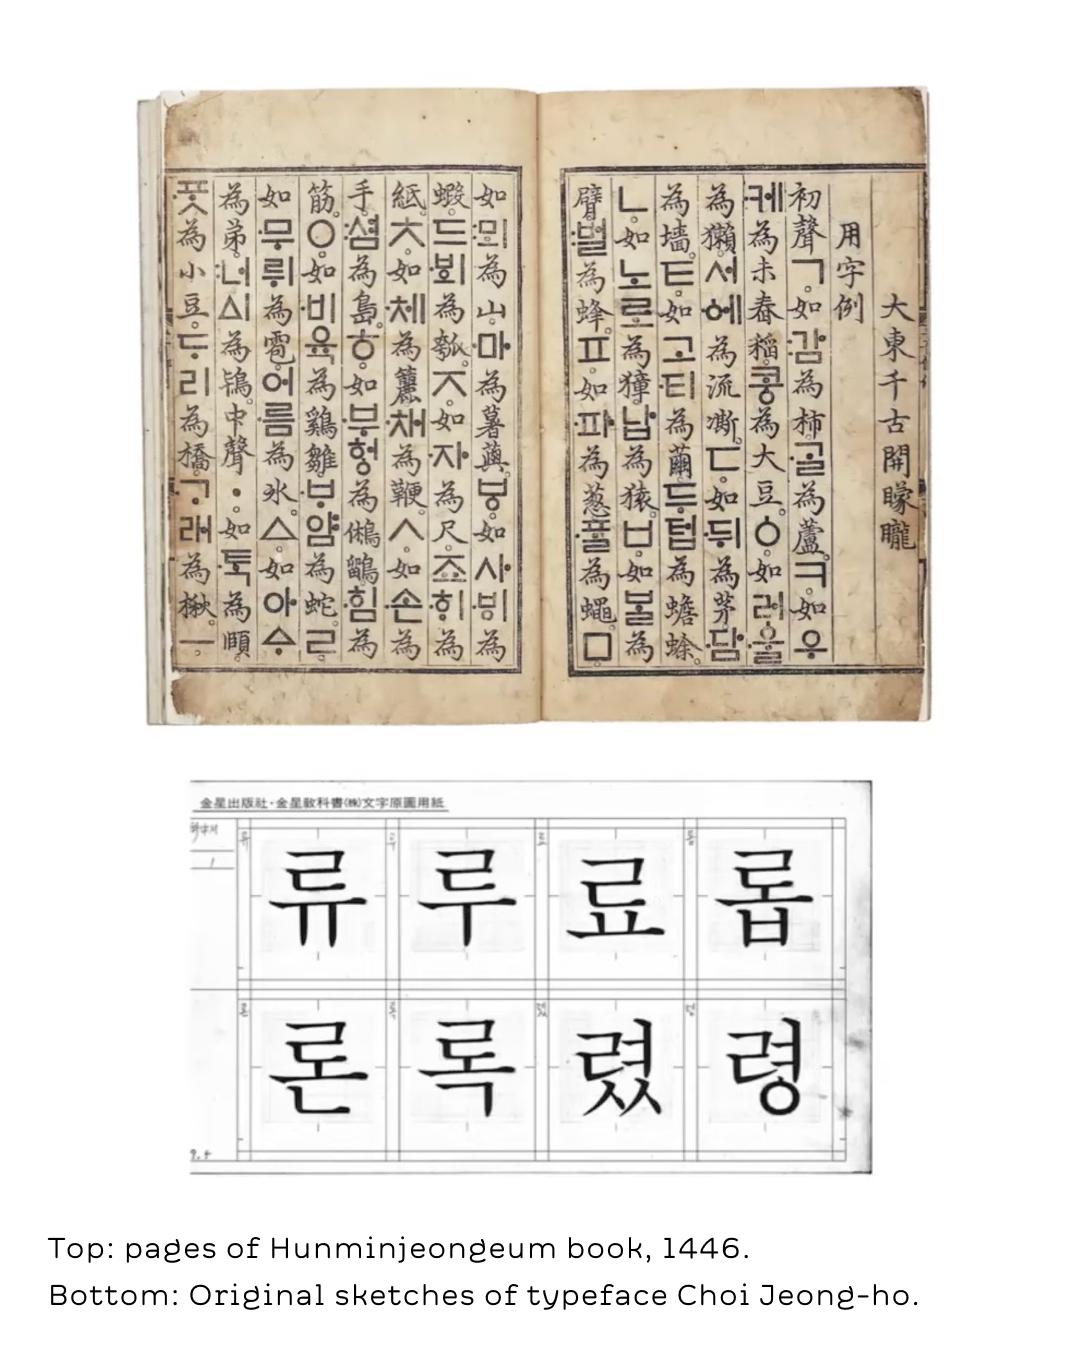 大東千古開矇矓
用字例
初聲ㄱ。如:감為柿。·ᄀᆞᆯ為蘆。ㅋ。如우
·케為未舂稻。콩為大豆。ㆁ。如러·울
為獺。서·에為流凘。ㄷ。如·뒤為茅。·담
為墻。ㅌ。如고·티為繭。두텁為蟾蜍。
ㄴ。如노로為獐。납為猿。ㅂ。如ᄇᆞᆯ為
臂。:벌為蜂。ㅍ。如·파為葱。·ᄑᆞᆯ為蠅。ㅁ。
如:뫼為山。·마為薯藇。ㅸ。如사·ᄫᅵ為
蝦。드·ᄫᅴ為瓠。ㅈ。如·자為尺。죠·ᄒᆡ為
紙。ㅊ。如·체為籭。·채為鞭。ㅅ。如·손為
手。:셤為島。ㅎ。如·부헝為鵂鶹。·힘為
筋。ㅇ。如·비육為鷄雛。·ᄇᆞ얌為蛇。ㄹ。
如·무뤼為雹。어·름為氷。ㅿ。如아ᅀᆞ
為弟。:너ᅀᅵ為鴇。中聲ㆍ。如·ᄐᆞᆨ為頤。
·ᄑᆞᆺ為小豆。ᄃᆞ리為橋。·ᄀᆞ래為楸。ㅡ。
金星出版社·金星敎科書(株)文字原圖用紙
류 루 료 롭
론 록 렸 령
Top: pages of Hunminjeongeum book, 1446.
Bottom: Original sketches of typeface Choi Jeong-ho.